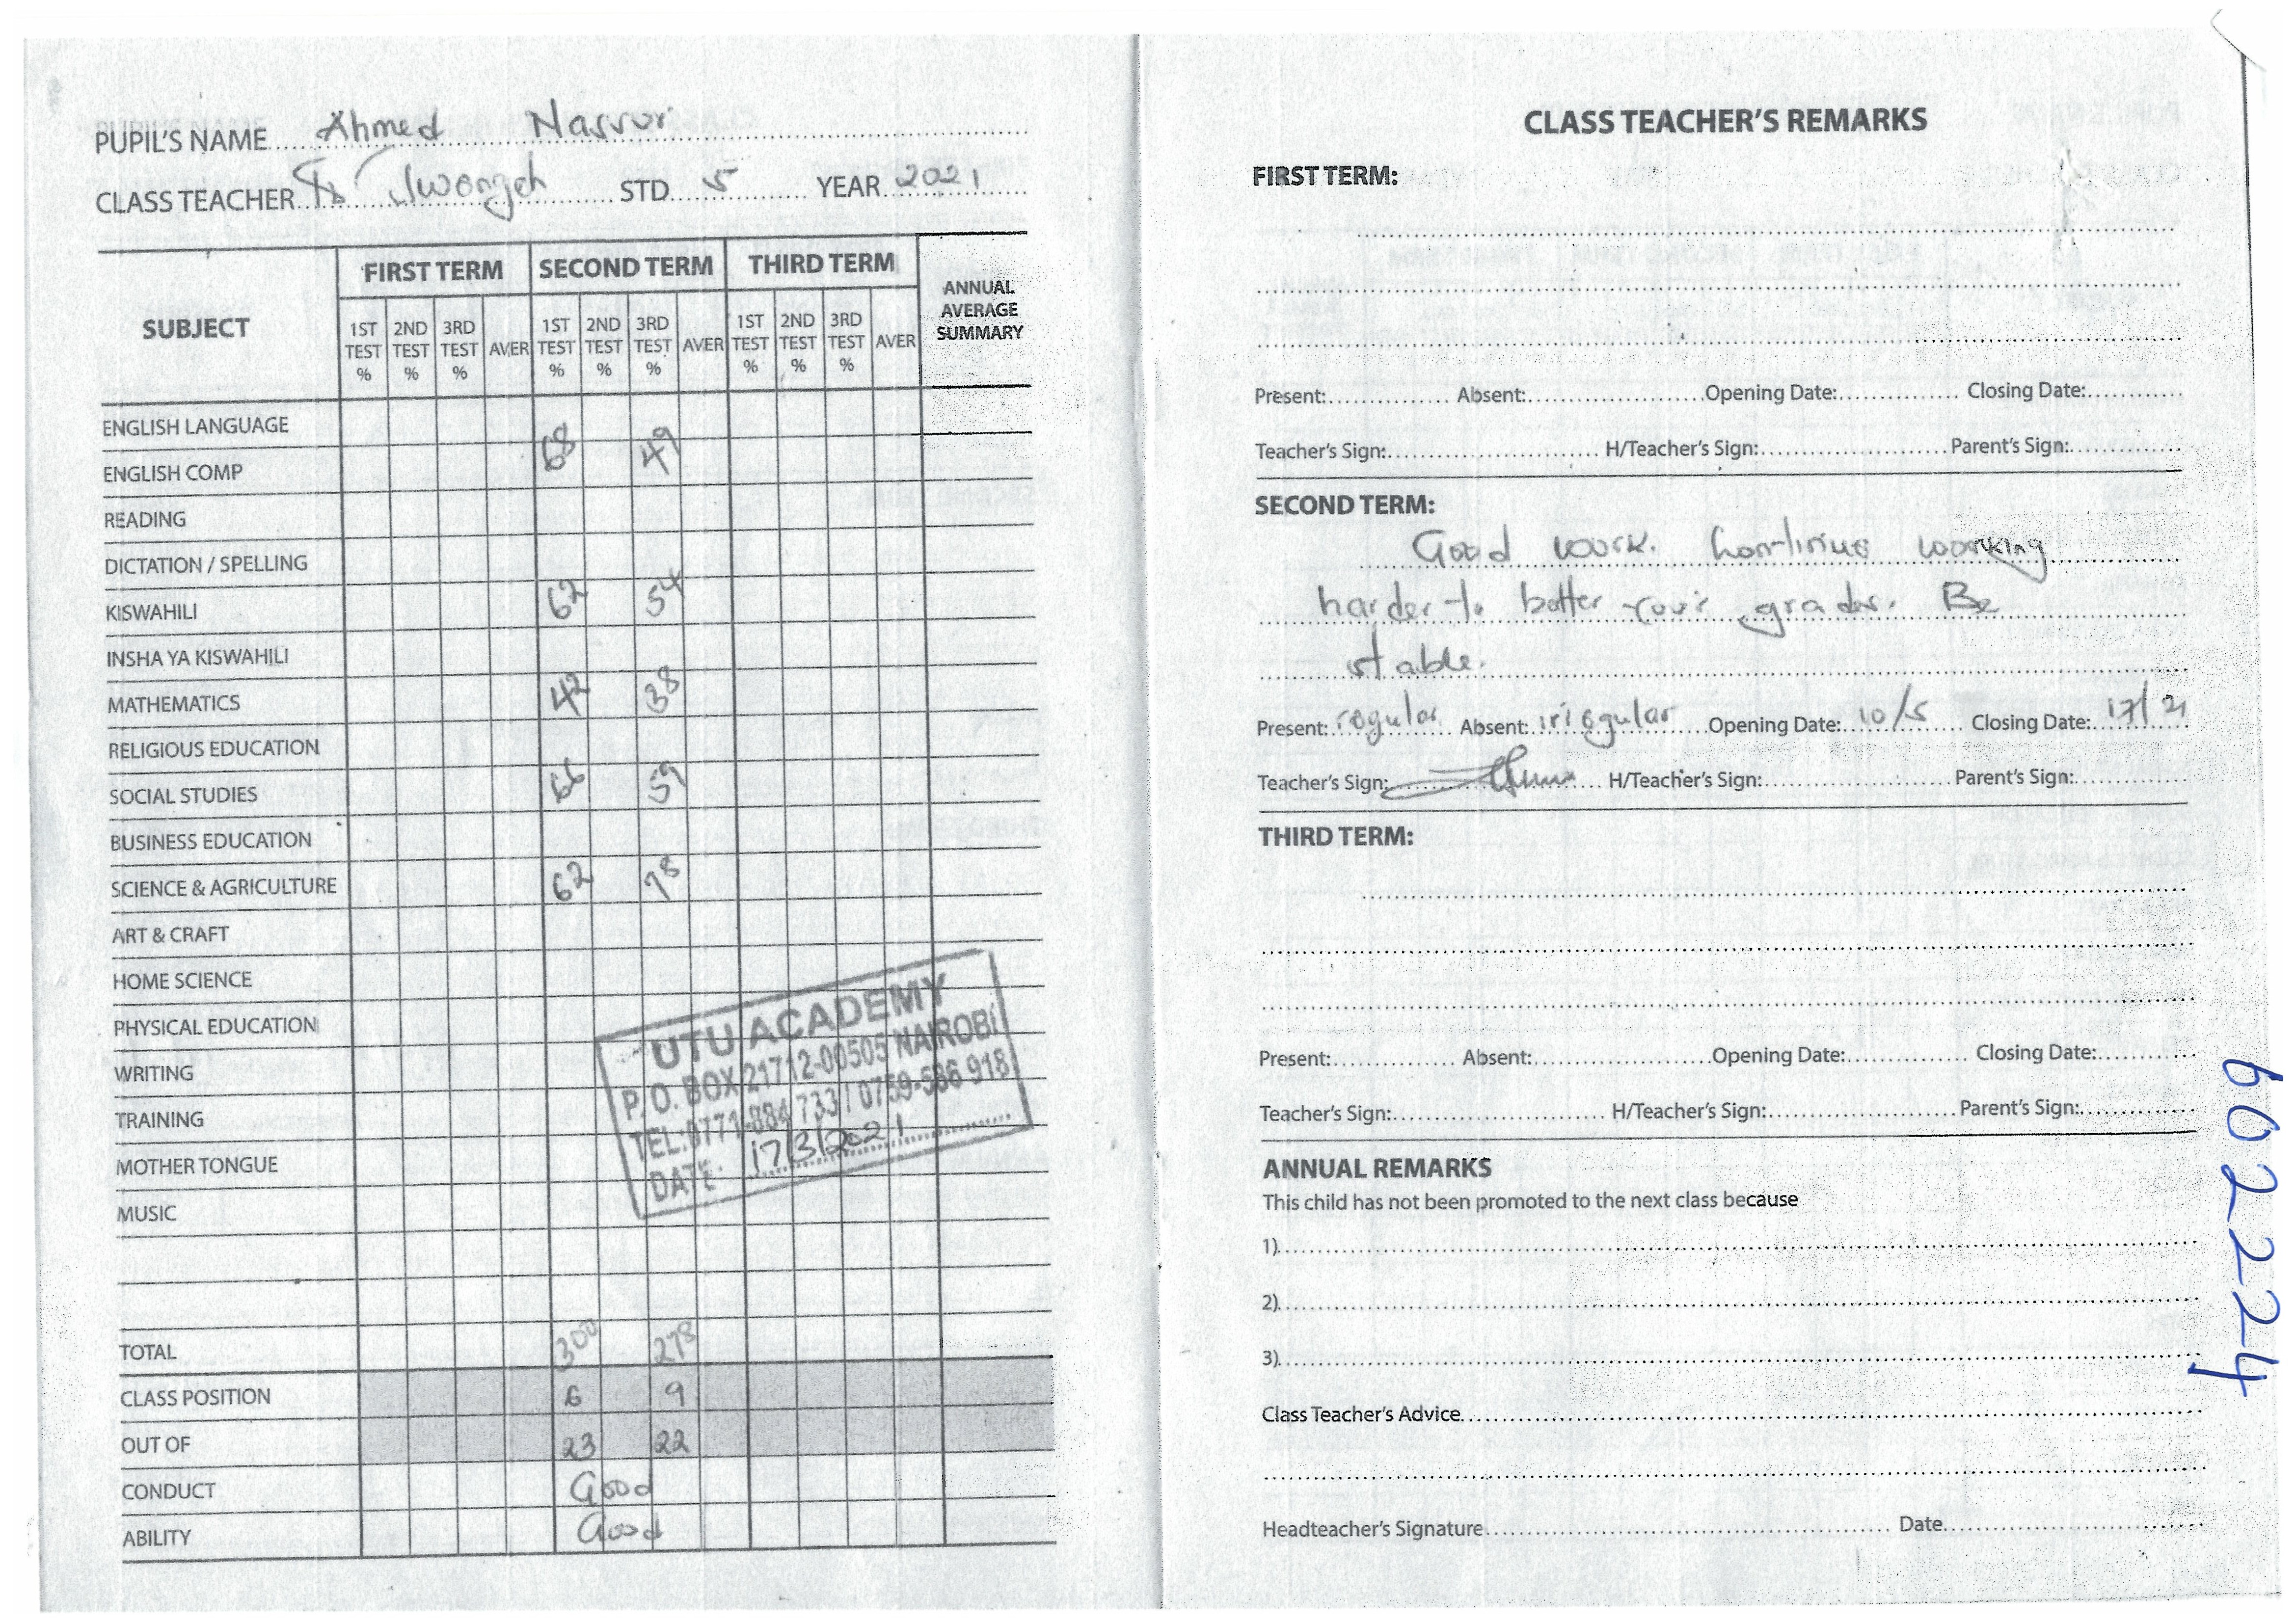 PUPIL'S NAME Ahmed Nassor
CLASS TEACHER STD. 5 YEAR 2021
SUBJECT FIRST TERM SECOND TERM THIRD TERM ANNUAL AVERAGE SUMMARY
1ST TEST % 2ND TEST % 3RD TEST % AVER 1ST TEST % 2ND TEST % 3RD TEST % AVER 1ST TEST % 2ND TEST % 3RD TEST % AVER
ENGLISH LANGUAGE
68 49
ENGLISH COMP
READING
DICTATION / SPELLING
KISWAHILI 62 54
INSHA YA KISWAHILI
MATHEMATICS 42 38
RELIGIOUS EDUCATION
SOCIAL STUDIES 66 59
BUSINESS EDUCATION
SCIENCE & AGRICULTURE 62 78
ART & CRAFT
HOME SCIENCE
PHYSICAL EDUCATION
WRITING
TRAINING
MOTHER TONGUE
MUSIC
UTU ACADEMY
P. O. BOX 21712-00505 NAIROBI
TEL: 0771-884 733 / 0759-586 918
DATE: 17/3/2021
TOTAL 300 278
CLASS POSITION 6 9
OUT OF 23 22
CONDUCT Good
ABILITY Good
CLASS TEACHER'S REMARKS
FIRST TERM:
Present: Absent: Opening Date: Closing Date:
Teacher's Sign: H/Teacher's Sign: Parent's Sign:
SECOND TERM:
Good work. Continue working
harder to better your grades. Be
stable.
Present: regular Absent: irregular Opening Date: 10/5 Closing Date:
Teacher's Sign: H/Teacher's Sign: Parent's Sign:
THIRD TERM:
Present: Absent: Opening Date: Closing Date:
Teacher's Sign: H/Teacher's Sign: Parent's Sign:
ANNUAL REMARKS
This child has not been promoted to the next class because
1)
2)
3)
Class Teacher's Advice
Headteacher's Signature Date
602224